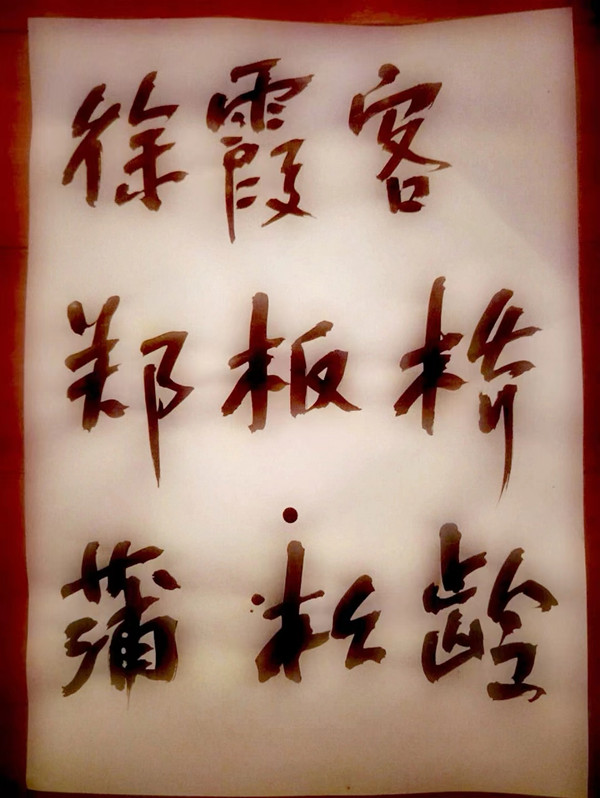 徐霞客
郑板桥
蒲松龄